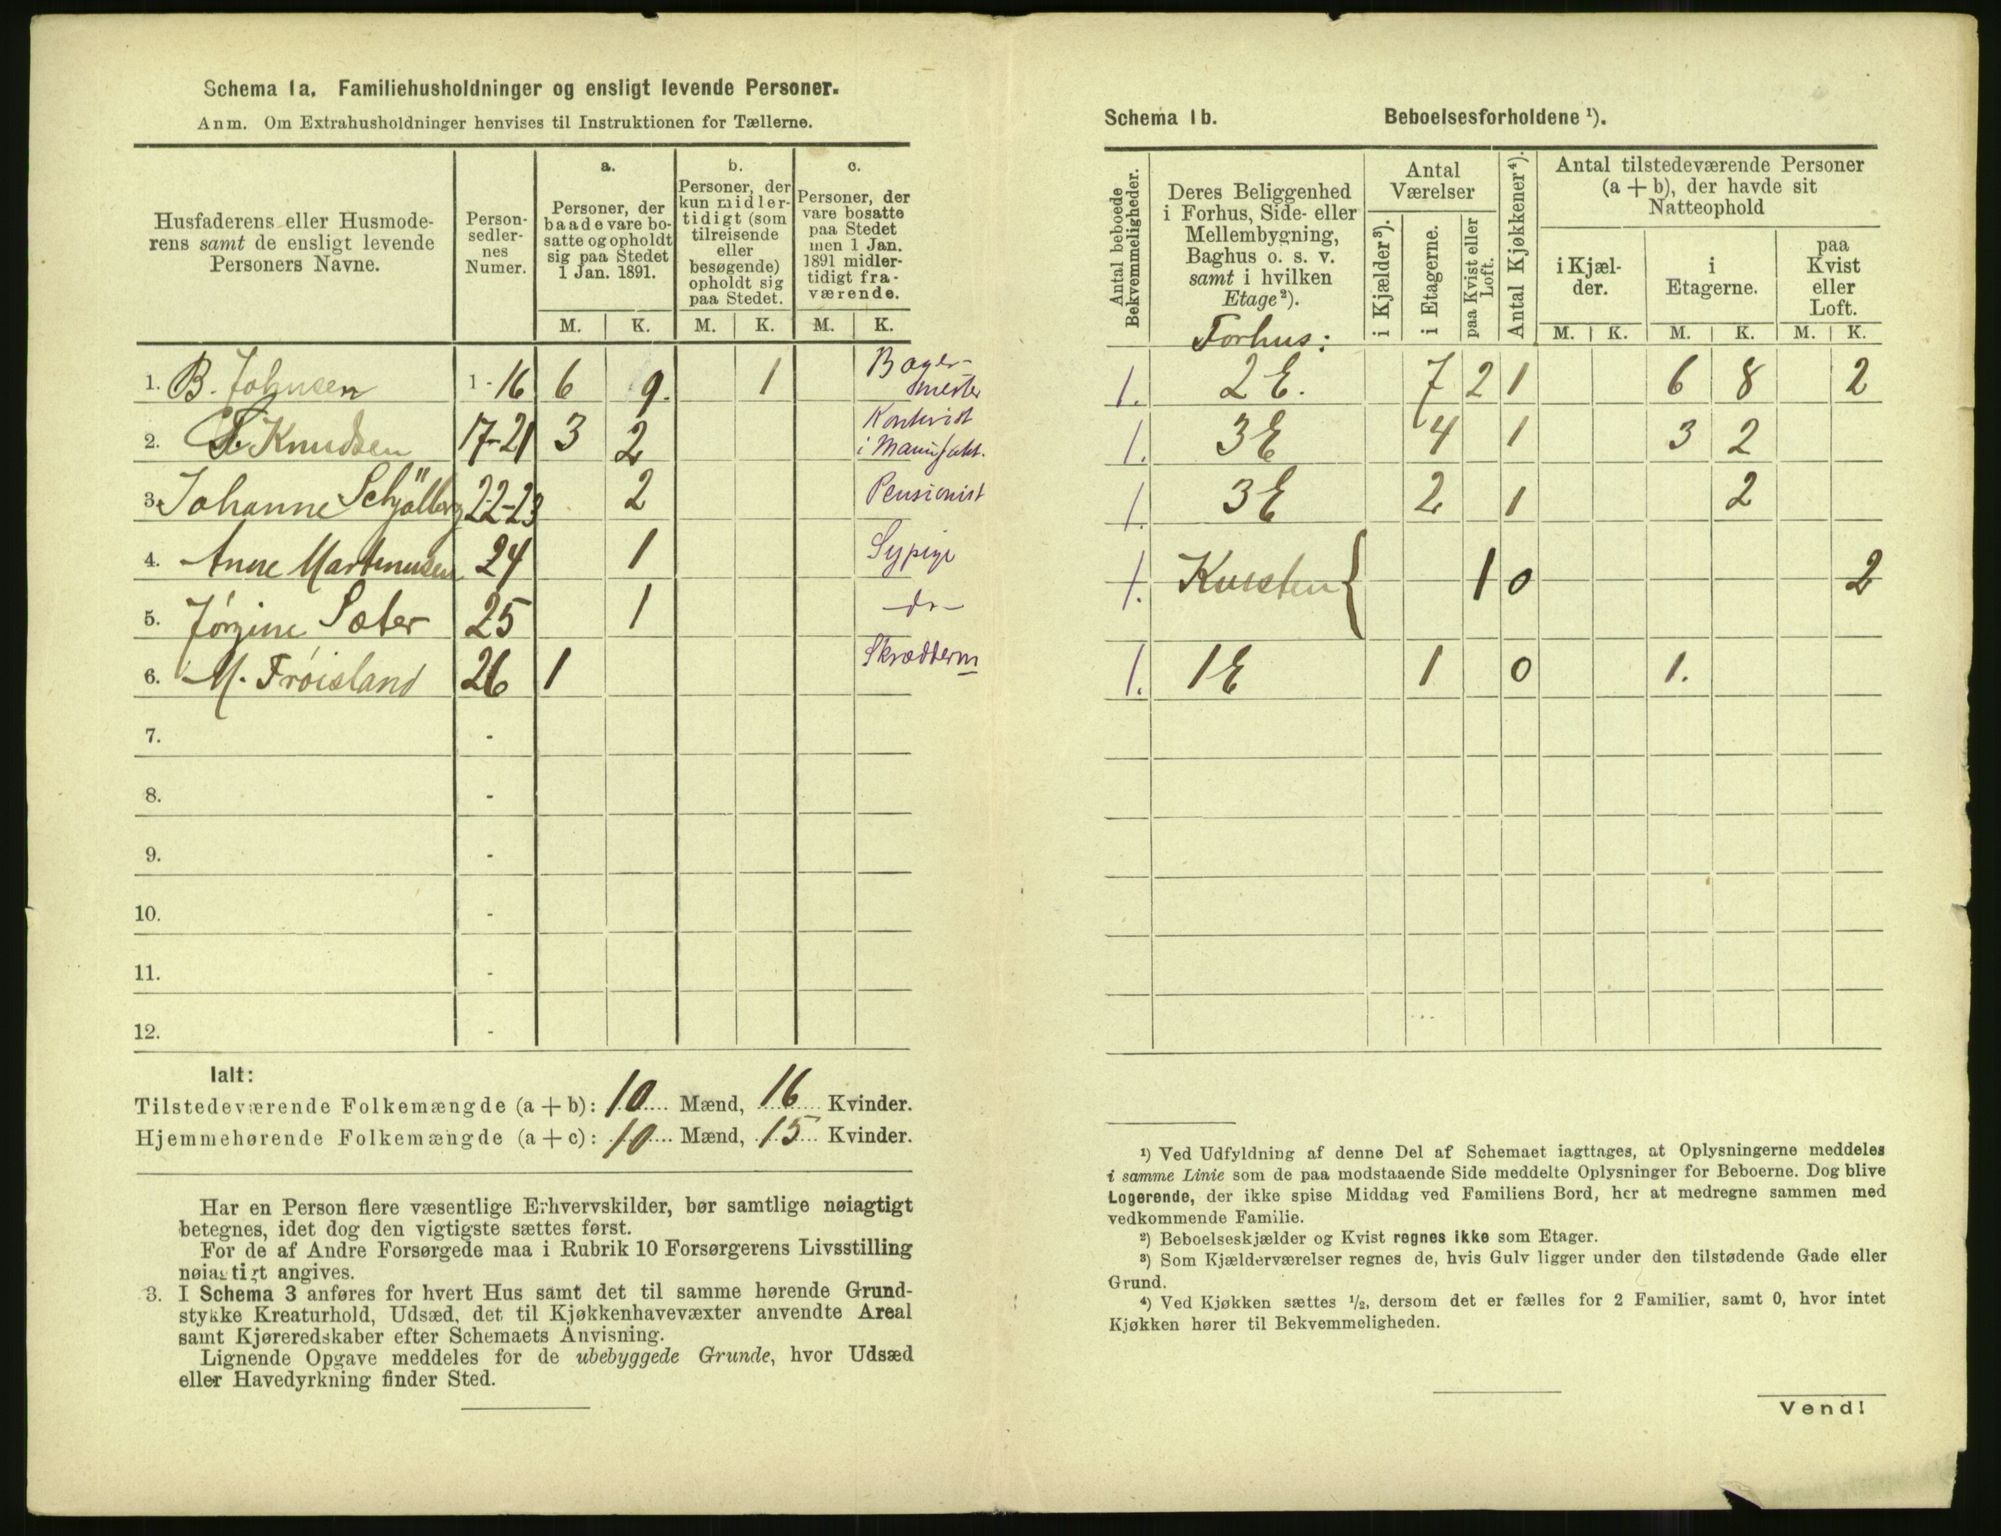 Schema 1a. Familiehusholdninger og ensligt levende Personer.
Anm. Om Extrahusholdninger henvises til Instruktionen for Tællerne.
Husfaderens eller Husmode-
rens samt de ensligt levende
Personers Navne.
Person-
sedler-
nes
Numer.
a.
Personer, der
baade vare bo-
satte og opholdt
sig paa Stedet
1 Jan. 1891.
b.
Personer, der
kun midler-
tidigt (som
tilreisende
eller
besøgende)
opholdt sig
paa Stedet.
c.
Personer, der
vare bosatte
paa Stedet
men 1 Jan.
1891 midler-
tidigt fra-
værende.
M. K. M. K. M. K.
1. B. Johnsen 1-16 6 9. 1 Bager-
mester
2. Knudsen 17-21 3 2 Kontorist
i Manufakt.
3. Johanne Schjölberg 22-23 2 Pensionist
4. Anne Martinusen 24 1 Sypige
5. Jørgine Sæter 25 1 -do-
6. M. Frøisland 26 1 Skrædderm
7. -
8. -
9. -
10. -
11. -
12. -
Ialt:
Tilstedeværende Folkemængde (a + b): 10 Mænd, 16 Kvinder.
Hjemmehørende Folkemængde (a + c): 10 Mænd, 15 Kvinder.
Har en Person flere væsentlige Erhvervskilder, bør samtlige nøiagtigt
betegnes, idet dog den vigtigste sættes først.
For de af Andre Forsørgede maa i Rubrik 10 Forsørgerens Livsstilling
nøiagtigt angives.
3. I Schema 3 anføres for hvert Hus samt det til samme hørende Grund-
stykke Kreaturhold, Udsæd, det til Kjøkkenhavevæxter anvendte Areal
samt Kjøreredskaber efter Schemaets Anvisning.
Lignende Opgave meddeles for de ubebyggede Grunde, hvor Udsæd
eller Havedyrkning finder Sted.
Schema 1b. Beboelsesforholdene ¹).
Antal beboede
Bekvemmeligheder.
Deres Beliggenhed
i Forhus, Side- eller
Mellembygning,
Baghus o. s. v.
samt i hvilken
Etage²).
Antal
Værelser
i Kjælder³).
i Etagerne.
paa Kvist eller
Loft.
Antal Kjøkkener⁴).
Antal tilstedeværende Personer
(a + b), der havde sit
Natteophold
i Kjæl-
der.
i
Etagerne.
paa
Kvist
eller
Loft.
M. K. M. K. M. K.
Forhus:
1. 2 E. 7 2 1 6 8 2
1. 3 E 4 1 3 2
1. 3 E 2 1 2
1. Kvisten { 1 0 2
1. 1 E 1 0 1.
¹) Ved Udfyldning af denne Del af Schemaet iagttages, at Oplysningerne meddeles
i samme Linie som de paa modstaaende Side meddelte Oplysninger for Beboerne. Dog blive
Logerende, der ikke spise Middag ved Familiens Bord, her at medregne sammen med
vedkommende Familie.
²) Beboelseskjælder og Kvist regnes ikke som Etager.
³) Som Kjælderværelser regnes de, hvis Gulv ligger under den tilstødende Gade eller
Grund.
⁴) Ved Kjøkken sættes ½, dersom det er fælles for 2 Familier, samt 0, hvor intet
Kjøkken hører til Bekvemmeligheden.
Vend!